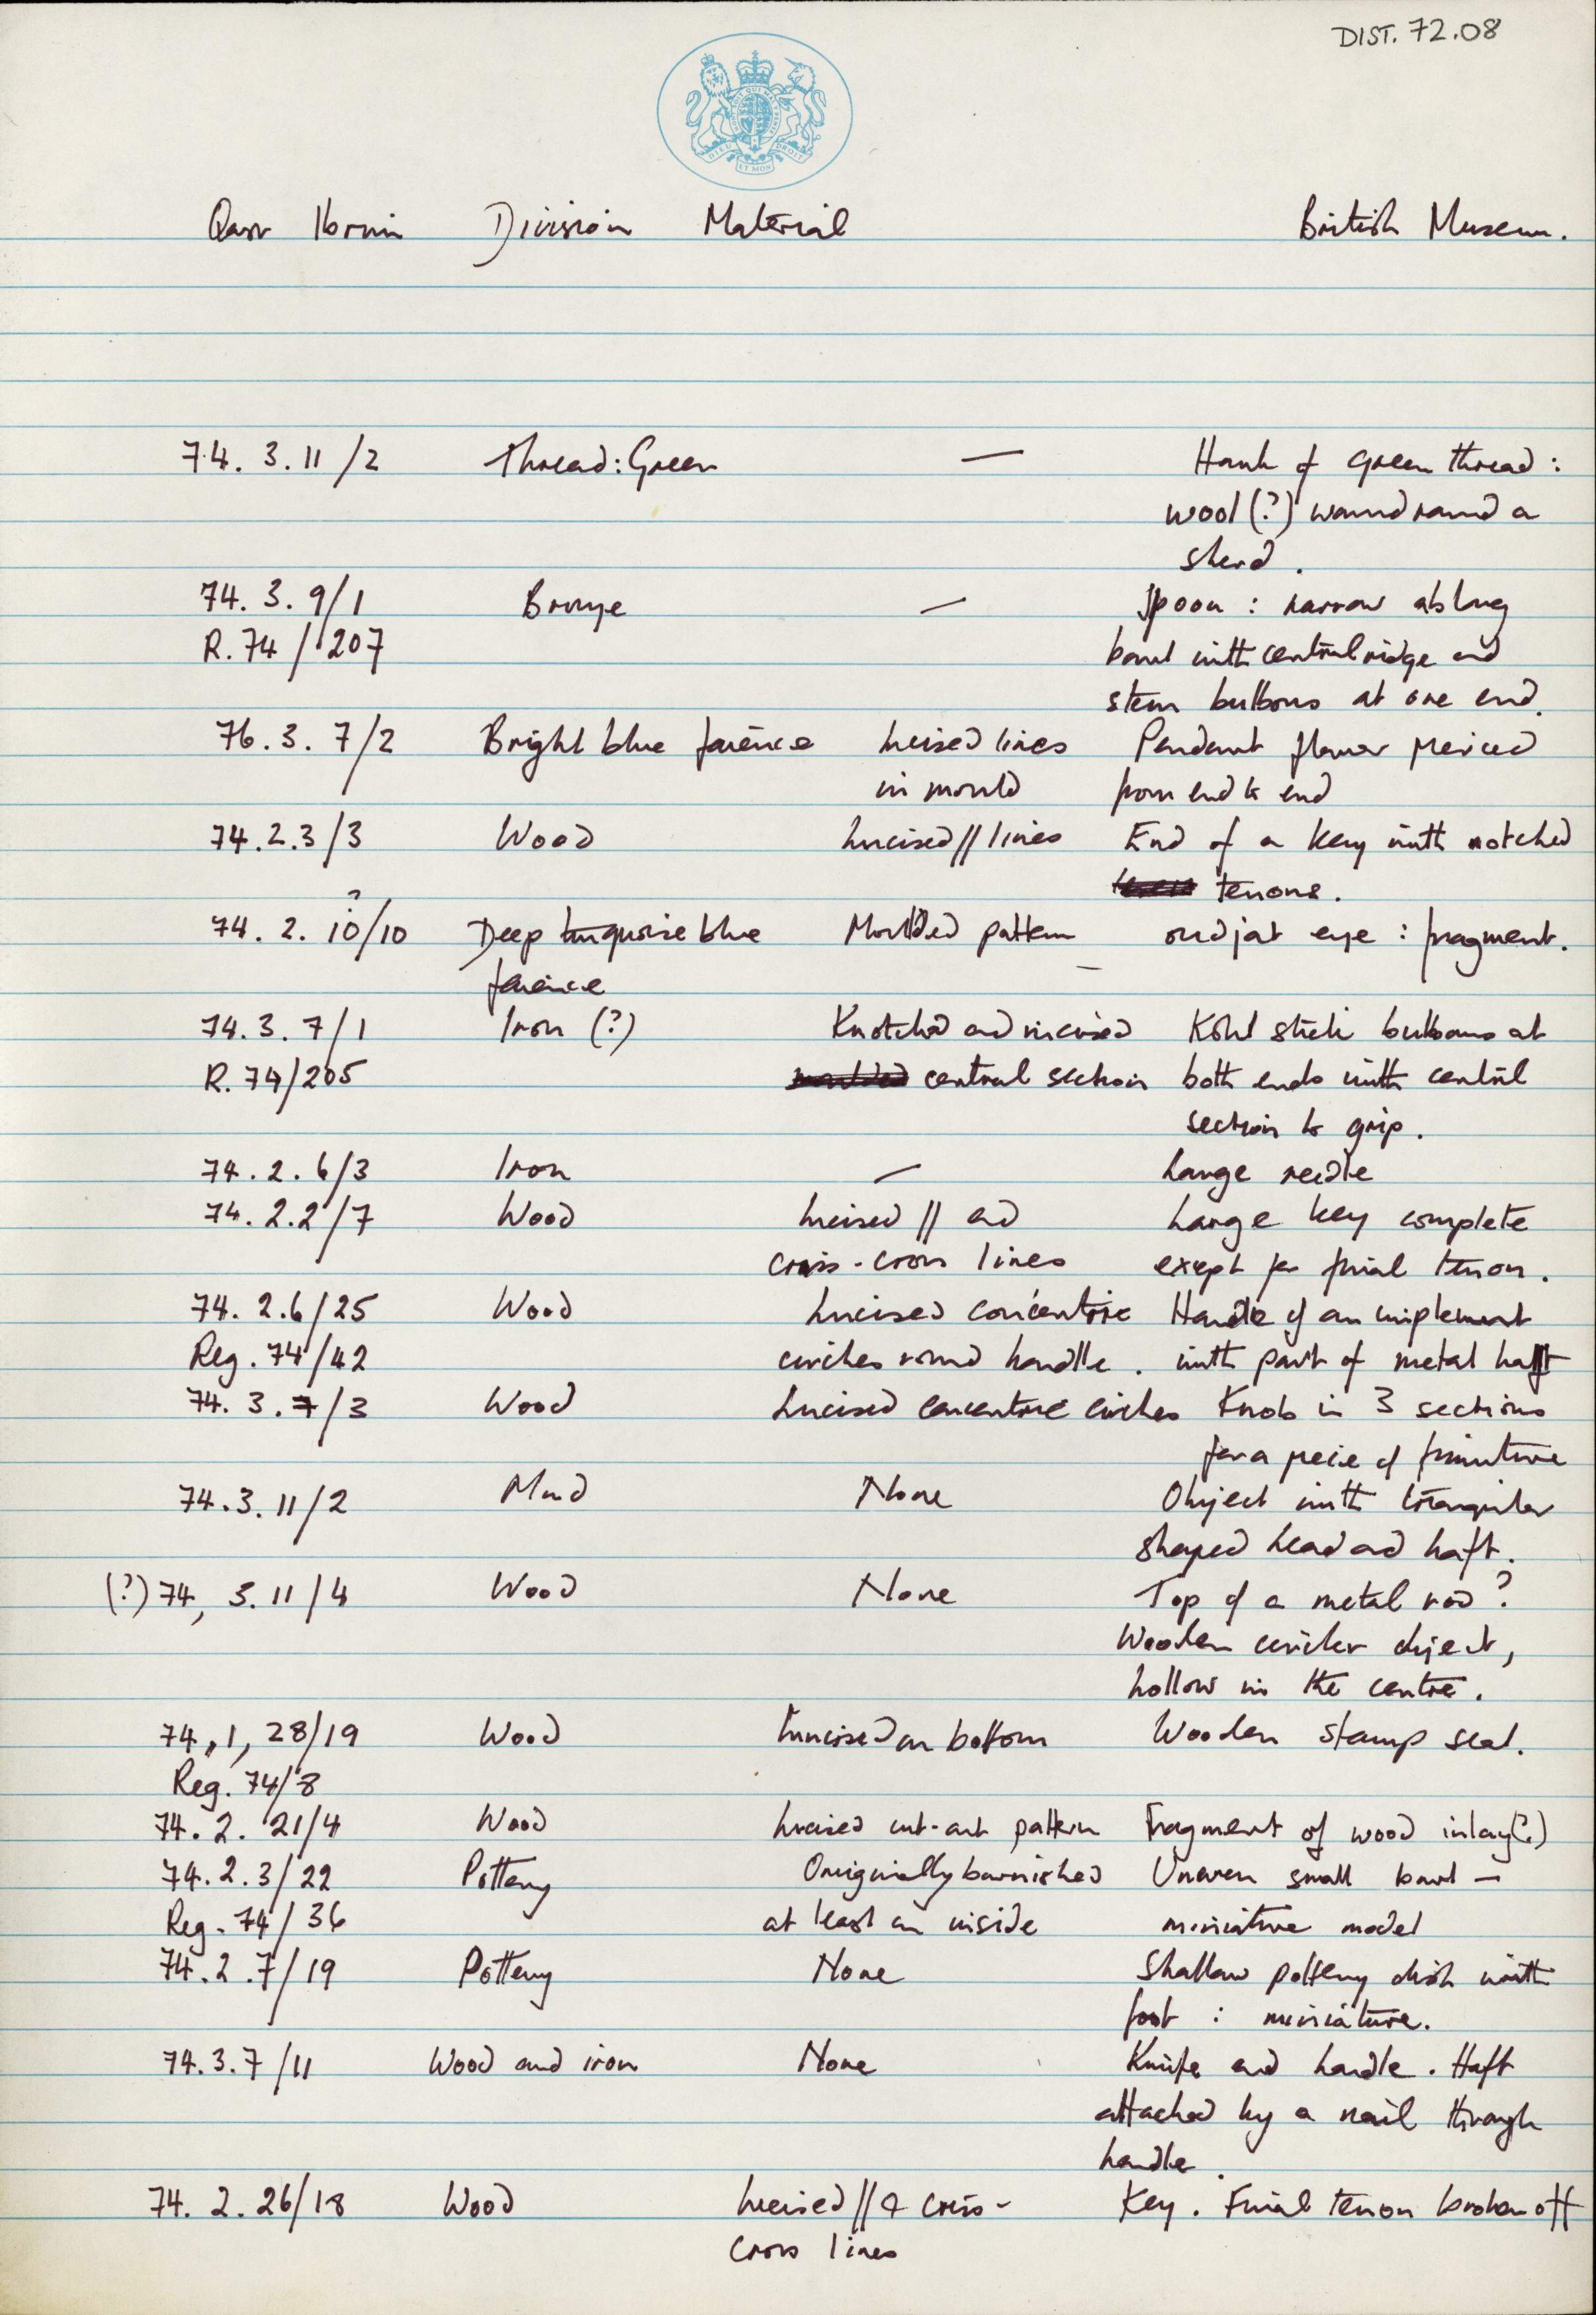 DIST. 72.08
DIEU ET MON DROIT
Qasr Ibrim Division Material British Museum.
74. 3. 11 /2 Thread: Green — Hank of green thread:
wool (?) wound round a
sherd.
74. 3. 9/1 Bronze — Spoon : narrow oblong
R. 74 / 207 bowl with central ridge and
stem bulbous at one end.
76. 3. 7/2 Bright blue faience Incised lines Pendant flower pierced
in mould from end to end
74.2.3/3 Wood Incised // lines End of a key with notched
tenons.
?
74. 2. 10/10 Deep turquoise blue Moulded pattern oudjat eye : fragment.
faience —
74. 3. 7/1 Iron (?) Knotched and incised Kohl stick bulbous at
R. 74/205 moulded central section both ends with central
section to grip.
74. 2. 6/3 Iron — Large needle
74. 2.2/7 Wood Incised // and Large key complete
criss-cross lines except for final tenon.
74. 2.6/25 Wood Incised concentric Handle of an implement
Reg. 74/42 circles round handle. with part of metal haft
74. 3. 7/3 Wood Incised concentric circles Knob in 3 sections
for a piece of furniture
74.3. 11/2 Mud None Object with triangular
shaped head and haft.
(?) 74, 3. 11/4 Wood None Top of a metal rod?
Wooden circular object,
hollow in the centre.
74, 1, 28/19 Wood Incised on bottom Wooden stamp seal.
Reg. 74/8
74. 2. 21/4 Wood Incised cut-out pattern Fragment of wood inlay(?)
74. 2. 3/22 Pottery Originally burnished Uneven small bowl —
Reg. 74/36 at least on inside miniature model
74. 2. 7/19 Pottery None Shallow pottery dish with
foot : miniature.
74.3.7/11 Wood and iron None Knife and handle. Haft
attached by a nail through
handle.
74. 2. 26/18 Wood Incised // & criss- Key. Final tenon broken off
cross lines